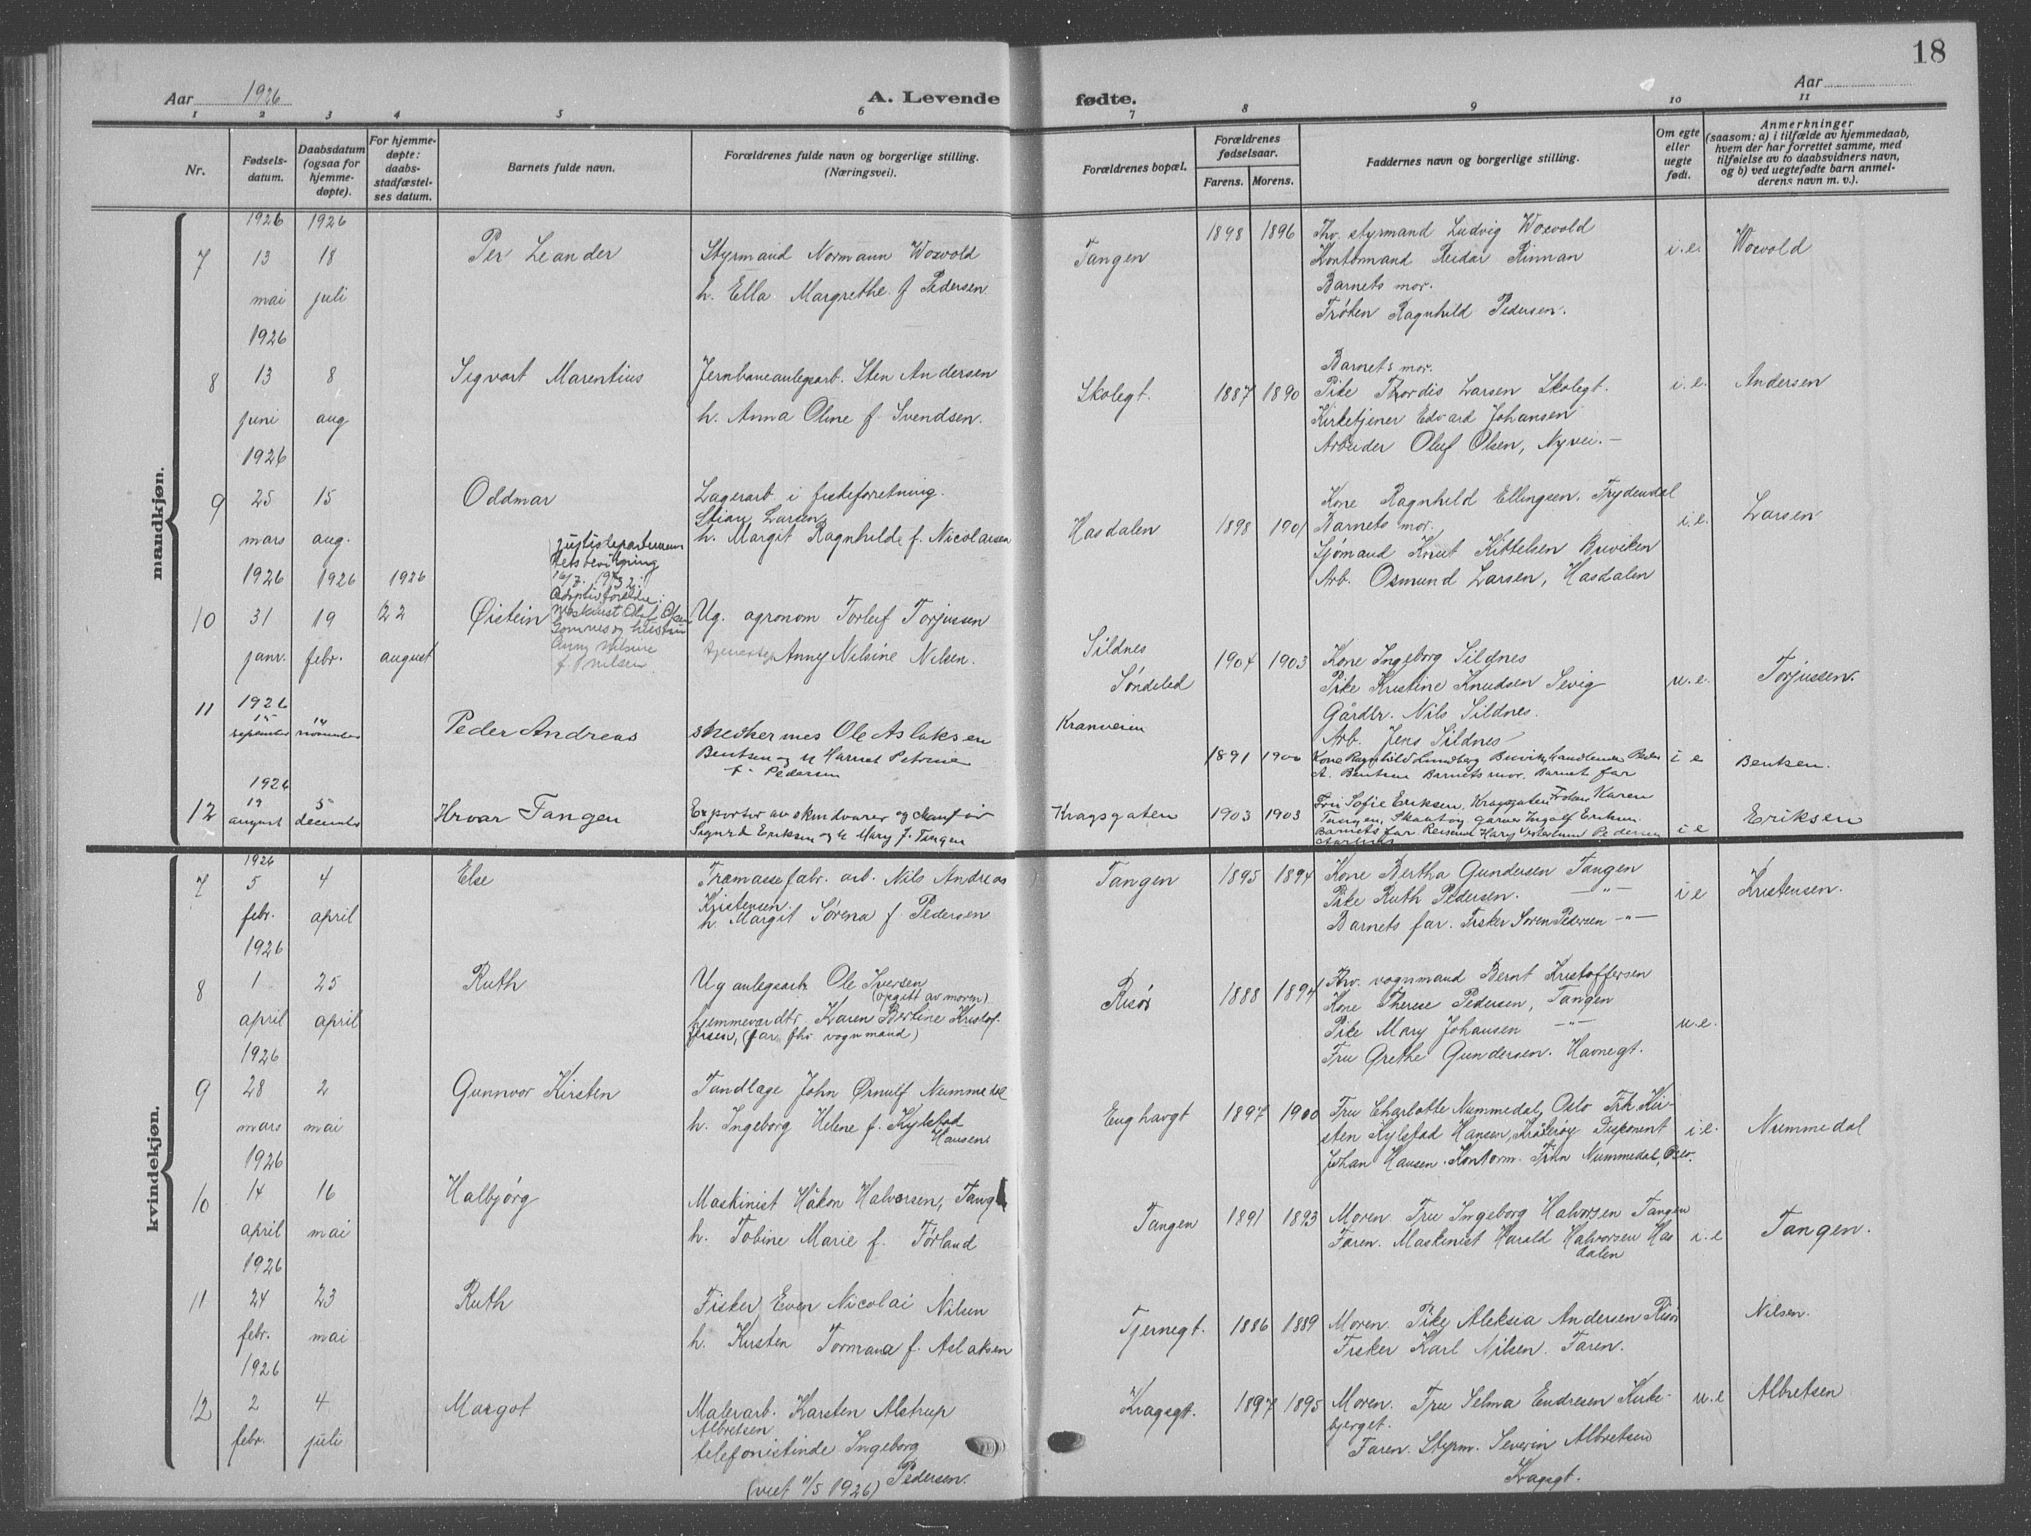 18
Aar 1926
A. Levende fødte.
Aar
1 2 3 4 5 6 7 8 9 10 11
Nr.
Fødsels-
datum.
Daabsdatum
(ogsaa for
hjemme-
døpte).
For hjemme-
døpte:
daabs-
stadfæstel-
ses datum.
Barnets fulde navn.
Forældrenes fulde navn og borgerlige stilling.
(Næringsvei).
Forældrenes bopæl.
Forældrenes
fødselsaar.
Farens. Morens.
Faddernes navn og borgerlige stilling.
Om egte
eller
uegte
født.
Anmerkninger
(saasom: a) i tilfælde av hjemmedaab,
hvem der har forrettet samme, med
tilføielse av to daabsvidners navn,
og b) ved uegtefødte barn anmel-
derens navn m. v.).
mandkjøn.
1926 1926
7 13 18
mai juli
Per Leander
Styrmand Normann Woxvold
h. Ella Margrethe f Pedersen
Tangen
1898 1896
Fhv. styrmand Ludvig Woxvold
Kontormand Reidar Rinnan
Barnets mor.
Frøken Ragnhild Pedersen.
i.e.
Woxvold
1926
8 13 8
juni aug
Sigvart Marentius
Jernbaneanlegsarb. Sten Andersen
h. Anna Oline f. Svendsen.
Skolegt.
1887 1890
Barnets mor.
Pike Thordis Larsen Skolegt.
Kirketjener Edvard Johansen
Arbeider Oluf Olsen, Nyvei.-
i.e.
Andersen
1926
9 25 15
mars aug.
Oddmar
Lagerarb. i fiskeforretning.
Stian Larsen
h. Margit Ragnhilde f. Nicolaisen
Hasdalen
1898 1901
Kone Ragnhild Ellingsen, Frydendal
Barnets mor.
Sjømand Knut Kittelsen Buviken
Arb. Osmund Larsen, Hasdalen
i.e.
Larsen
1926 1926 1926
10 31 19 22
janr. febr. august
Øistein
Justisdepartemen
tets bevilgning
16/7. 1932:
Adoptivforeldre:
Maskinist Olaf Olsen
og hustru
Anny Nilsine
f. Nilsen
Ug. agronom Torleif Torjussen
Anny Nilsine Nilsen.
Sildnes
Søndeled
1904 1903
Kone Ingeborg Sildnes
Pike Kristine Knudsen Sevig
Gårdbr. Nils Sildnes.
Arb. Jens Sildnes
u.e.
Torjussen.
1926
11 15 14
september november
Peder Andreas
Ole Aslaksen
Bentsen og h Harriet Petrine
f. Pedersen
Kranveien
1891 1900
Kone Ragnhild Lundberg Buvik, Handlende Peder
A. Bentsen Barnets mor. Barnets far
i e
Bentsen.
1926
12 19 5
august december
Hroar Tangen
Exportør av skindvarer og
Sigurd Eriksen og h Mary f. Tangen
Kragsgaten
1903 1903
Fru Sofie Eriksen, Kragsgaten Frøken Karen
Tangen, Skaatøy, garver Ingolf Eriksen
Barnets far Reisende Harry Pedersen
i e
Eriksen
kvindekjøn.
1926
7 5 4
febr. april
Else
Tremassefabr. arb. Nils Andreas
Kristensen.
h. Margit Sørena f. Pedersen
Tangen
1895 1894
Kone Bertha Gundersen Tangen
Pike Ruth Pedersen. -"-
Barnets far. Fisker Søren Pedersen -"-
i e
Kristensen.
1926
8 1 25
april april
Ruth
Ug anlegsarb. Ole Iversen
(opgitt av moren)
hjemmevæ. dtr. Karen Bertine Kristof-
fersen, (far fhv vognmand)
Risør
1888 1894
Fhv. vognmand Bernt Kristoffersen
Kone Therese Pedersen, Tangen
Pike Mary Johansen -"-
Fru Grethe Gundersen. Havnegt.
u.e.
1926
9 28 2
mars mai
Gunnvor Kirsten
Tandlæge John Ørnulf Nummedal
h. Ingeborg Helene f. Kylstad
Hansen
Enghavgt
1897 1900
Fru Charlotte Nummedal, Oslo Frk. Kir-
sten Kylstad Hansen, Disponent
Johan Hansen. Kontorm. Finn Nummedal, Oslo.
i.e.
Nummedal
1926
10 14 16
april mai
Halbjørg
Maskinist Håkon Halvorsen, Tang
h. Tobine Marie f. Førland
Tangen
1891 1893
Moren Fru Ingeborg Halvorsen Tangen
Faren. Maskinist Harald Halvorsen Has
dalen
i.e
Tangen.
1926
11 24 23
febr. mai
Ruth
Fisker Even Nicolai Nilsen
h. Kirsten Tormana f. Aslaksen
Tjernegt.
1886 1889
Moren. Pike Aleksia Andersen Risør
Fisker Karl Nilsen. Faren.
Nilsen.
1926
12 2 4
febr. juli
Margot
Malerarb. Karsten Alstrup
Albretsen
telefonistinde Ingeborg
Pedersen.
(viet 11/5 1926)
Kragsgt.
1897 1895
Moren. Fru Selma Endresen Kirke-
bjerget.
Faren. Styrm. Severin Albretsen
Kragsgt.
u.e
Albretsen